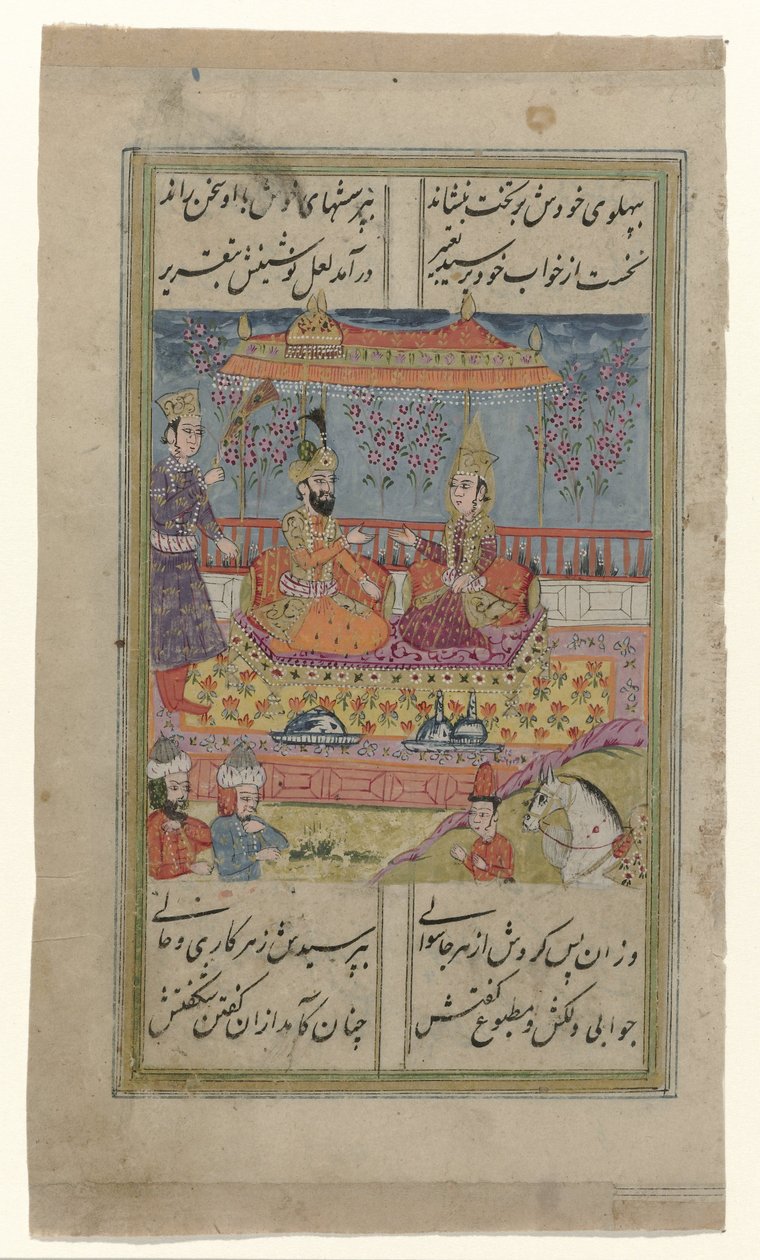 بپهلوی خودش بر تخت بنشاند بپرسشهای خوش با او سخن راند
نخست از خواب خود پرسید تعبیر درآمد لعل نوشینش بتقریر
وزان پس کردش از هر جا سوالی بپرسیدش ز هر کاری و حالی
جوابی دلکش و مطبوع گفتش چنان کامد ازان گفتن شگفتش